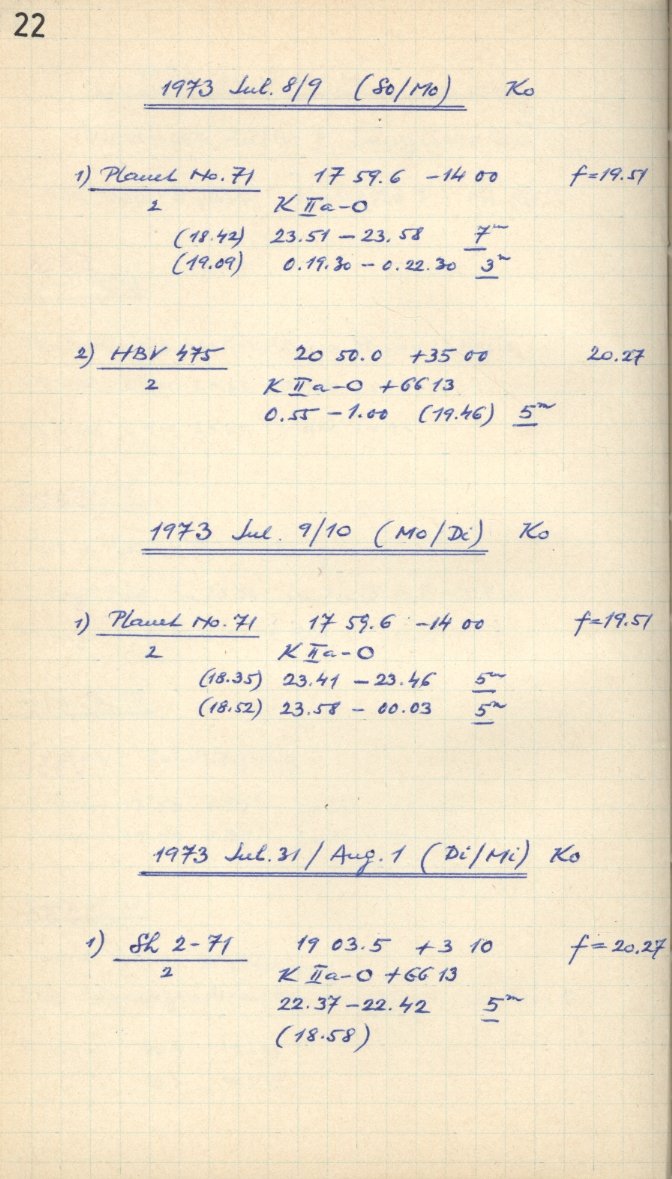 22
1973 Jul. 8/9 (So/Mo) Ko
1) Planet No. 71 17 59.6 -14 00 f=19.51
2 K IIa-O
(18.42) 23.51 - 23.58 7m
(19.09) 0.19.30 - 0.22.30 3m
2) HBV 475 20 50.0 +35 00 20.27
2 K IIa-O +GG 13
0.55 - 1.00 (19.46) 5m
1973 Jul. 9/10 (Mo/Di) Ko
1) Planet No. 71 17 59.6 -14 00 f=19.51
2 K IIa-O
(18.35) 23.41 - 23.46 5m
(18.52) 23.58 - 00.03 5m
1973 Jul. 31 / Aug. 1 (Di/Mi) Ko
1) Sh 2-71 19 03.5 +3 10 f=20.27
2 K IIa-O +GG 13
22.37 - 22.42 5m
(18.58)